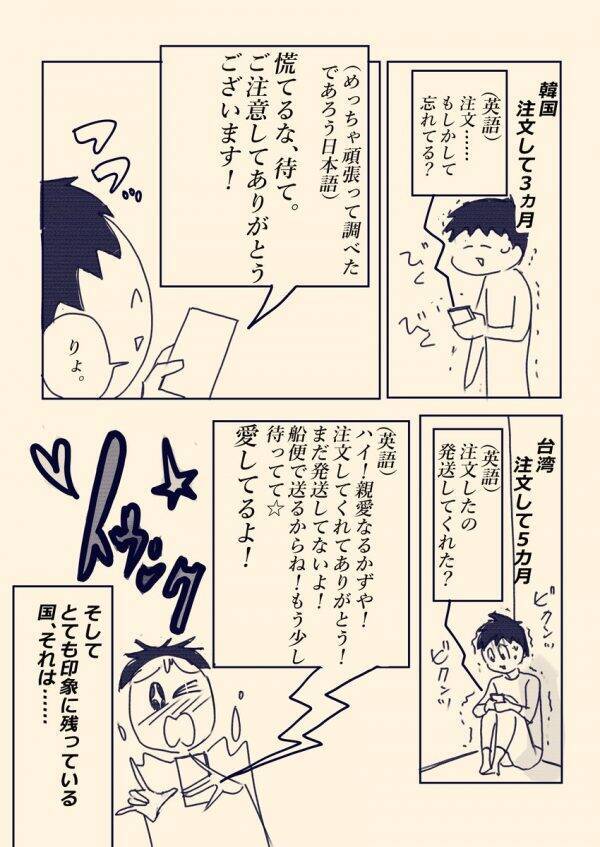 韓国
注文して3カ月
(英語)
注文……
もしかして
忘れてる?
びく
びく
(めっちゃ頑張って調べた
であろう日本語)
慌てるな、待て。
ご注意してありがとう
ございます!
フフッ
りょ。
台湾
注文して5カ月
(英語)
注文したの
発送してくれた?
ビクンッ
ビクンッ
(英語)
ハイ!親愛なるかずや!
注文してくれてありがとう!
まだ発送してないよ!
船便で送るからね!もう少し
待ってて☆
愛してるよ!
そして
とても印象に残っている
国、それは……